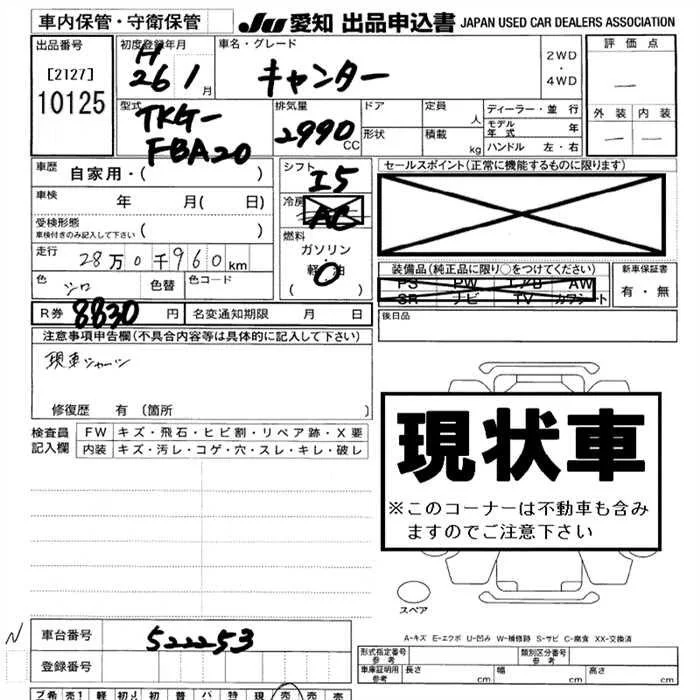 車内保管・守衛保管
JU 愛知 出品申込書 JAPAN USED CAR DEALERS ASSOCIATION
出品番号
[2127]
10125
初度登録年月
H
26 1 月
車名・グレード
キャンター
2WD
・
4WD
評価点
―
外装 内装
― ―
型式
TKG-
FBA20
排気量
2990 CC
ドア
形状
定員 人
積載 kg
ディーラー・並行
モデル年式 年
ハンドル 左・右
車歴 自家用・( )
車検 年 月( 日)
受検形態
車検付きのみ記入して下さい ( )
走行 28万0千960km
色 シロ 色替 色コード
R券 8830 円 名変通知期限 月 日
シフト
I5
冷房
AC
燃料
ガソリン
・
軽油
( )
セールスポイント(正常に機能するものに限ります)
装備品(純正品に限り○をつけてください)
PS PW エアB AW
SR ナビ TV カワシート
新車保証書
有・無
後日品
注意事項申告欄(不具合内容等は具体的に記入して下さい)
修復歴 有(箇所 )
検査員
記入欄
FW キズ・飛石・ヒビ割・リペア跡・X要
内装 キズ・汚レ・コゲ・穴・スレ・キレ・破レ
現状車
※このコーナーは不動車も含み
ますのでご注意下さい
スペア
A-キズ E-エクボ U-凹み W-補修跡 S-サビ C-腐食 XX-交換済
N
車台番号 522253
登録番号
形式指定番号
参考
類別区分番号
参考
車庫証明用
参考
長さ cm 幅 cm 高さ cm